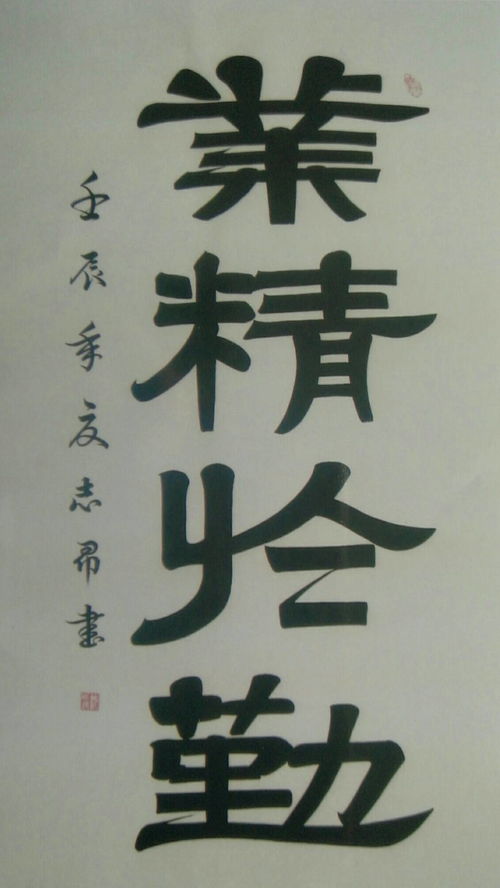 業精於勤
壬辰年夏志昂書